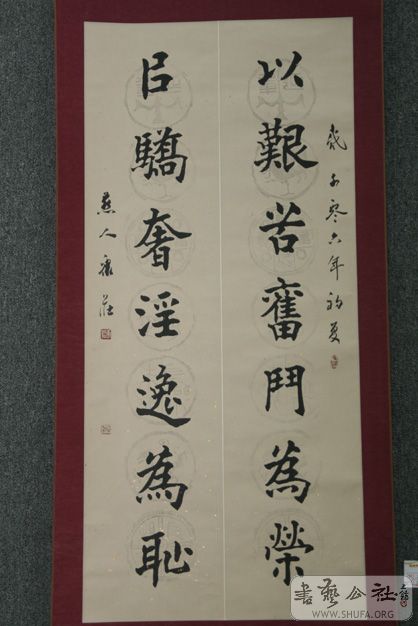 歲于零六年初夏
以艱苦奮鬥為榮
㠯驕奢淫逸為恥
燕人康莊
書藝公社
WWW.SHUFA.ORG